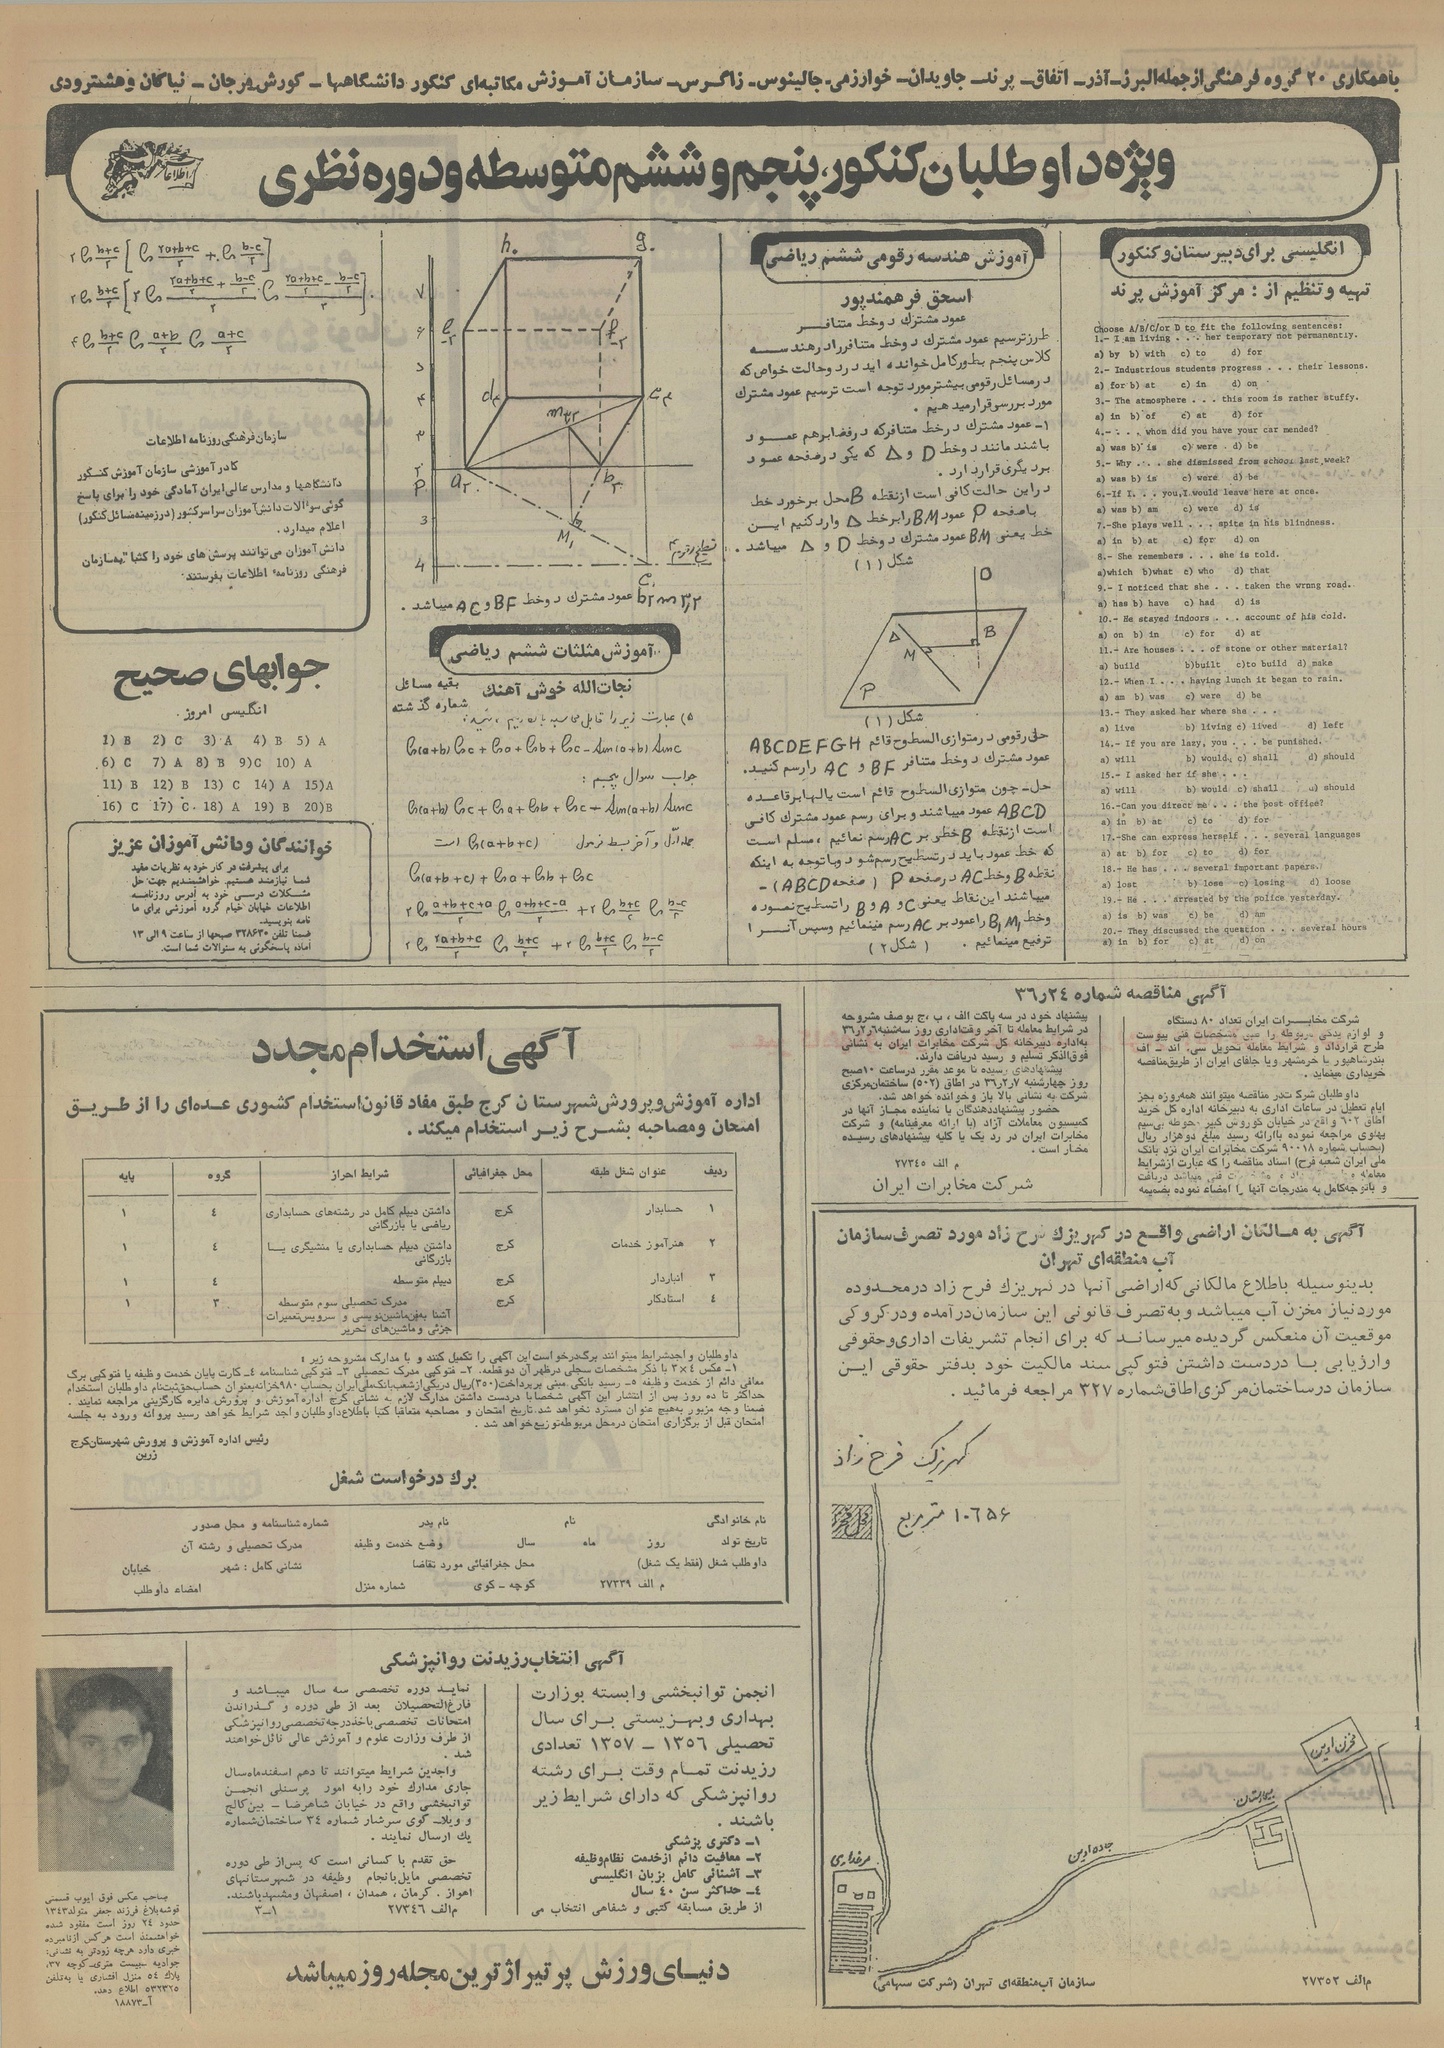 باهمکاری ۲۰ گروه فرهنگی ازجمله البرز - آذر - اتفاق - پرند - جاویدان - خوارزمی - جالینوس - زاگرس - سازمان آموزش مکاتبه‌ای کنکور دانشگاهها - کورش - مرجان - نیاکان و هشترودی
ویژه داوطلبان کنکور، پنجم و ششم متوسطه و دوره نظری
انگلیسی برای دبیرستان و کنکور
تهیه و تنظیم از : مرکز آموزش پرند
Choose A/B/C/or D to fit the following sentences:
1.- I am living . . . her temporary not permanently.
a) by b) with c) to d) for
2.- Industrious students progress . . . their lessons.
a) for b) at c) in d) on
3.- The atmosphere . . . this room is rather stuffy.
a) in b) of c) at d) for
4.- . . . whom did you have your car mended?
a) was b) is c) were d) be
5.- Why . . . she dismissed from school last week?
a) was b) is c) were d) be
6.-If I. . . you,I would leave here at once.
a) was b) am c) were d) is
7.-She plays well . . . spite in his blindness.
a) in b) at c) for d) on
8.- She remembers . . . she is told.
a)which b)what c) who d) that
9.- I noticed that she . . . taken the wrong road.
a) has b) have c) had d) is
10.- He stayed indoors . . . account of his cold.
a) on b) in c) for d) at
11.- Are houses . . . of stone or other material?
a) build b)built c)to build d) make
12.- When I . . . having lunch it began to rain.
a) am b) was c) were d) be
13.- They asked her where she . . .
a) live b) living c) lived d) left
14.- If you are lazy, you . . . be punished.
a) will b) would c) shall d) should
15.- I asked her if she . . .
a) will b) would c) shall d) should
16.-Can you direct me . . . the post office?
a) in b) at c) to d) for
17.-She can express herself . . . several languages
a) at b) for c) to d) for
18.- He has . . . several important papers.
a) lost b) lose c) losing d) loose
19.- He . . . arrested by the police yesterday.
a) is b) was c) be d) am
20.- They discussed the question . . . several hours
a) in b) for c) at d) on
آموزش هندسه رقومی ششم ریاضی
اسحق فرهمندپور
عمود مشترك دوخط متنافر
طرز ترسیم عمود مشترك دوخط متنافر را در هندسه
کلاس پنجم بطور کامل خوانده اید در دو حالت خواص که
در مسائل رقومی بیشتر مورد توجه است ترسیم عمود مشترك
مورد بررسی قرار میدهیم .
۱- عمود مشترك دو خط متنافر که در فضا بر هم عمود
باشند مانند دوخط D و Δ که یکی در صفحه عمود
بر دیگری قرار دارد .
در این حالت کافی است از نقطه B محل برخورد خط
با صفحه P عمود BM را بر خط Δ وارد کنیم این
خط یعنی BM عمود مشترك دوخط D و Δ میباشد .
شکل (۱)
D
B
Δ
M
P
شکل (۱)
حل رقومی در متوازی السطوح قائم ABCDEFGH
عمود مشترك دوخط متنافر BF و AC را رسم کنید.
حل - چون متوازی السطوح قائم است یالها بر قاعده
ABCD عمود میباشند و برای رسم عمود مشترك کافی
است از نقطه B خطی بر AC رسم نمائیم ، مسلم است
که خط عمود باید در تسطیح رسم شود و با توجه به اینکه
نقطه B و خط AC در صفحه P ( صفحه ABCD) -
میباشند این نقاط یعنی C و A و B را تسطیح نموده
و خط B₁M₁ را عمود بر AC رسم مینمائیم وسپس آنرا
ترفیع مینمائیم . ( شکل ۲ )
عمود مشترك دوخط BF و AC میباشد .
آموزش مثلثات ششم ریاضی
نجات‌الله خوش آهنك
بقیه مسائل
شماره گذشته
جواب سوال پنجم :
سازمان فرهنگی روزنامه اطلاعات
کادر آموزشی سازمان آموزش کنکور
دانشگاهها و مدارس عالی ایران آمادگی خود را برای پاسخ
گوئی سوالات دانش‌آموزان سراسر کشور (در زمینه مسائل کنکور)
اعلام میدارد .
دانش‌آموزان می‌توانند پرسش های خود را کتبا به سازمان
فرهنگی روزنامه اطلاعات بفرستند.
جوابهای صحیح
انگلیسی امروز
1) B 2) C 3) A 4) B 5) A
6) C 7) A 8) B 9)C 10) A
11) B 12) B 13) C 14) A 15)A
16) C 17) C 18) A 19) B 20)B
خوانندگان و دانش آموزان عزیز
برای پیشرفت در کار خود به نظریات مفید
شما نیازمند هستیم. خواهشمندیم جهت حل
مشکلات درسی خود به آدرس روزنامه
اطلاعات خیابان خیام گروه آموزشی برای ما
نامه بنویسید.
ضمنا تلفن ۳۲۸۶۳۰ صبحها از ساعت ۹ الی ۱۳
آماده پاسخگوئی به سئوالات شما است.
آگهی مناقصه شماره ۳۶ر۲۴
شرکت مخابرات ایران تعداد ۸۰ دستگاه
و لوازم یدکی مربوطه را طبق مشخصات فنی پیوست
طرح قرارداد و شرایط معامله تحویل سی. اند - اف
بندرشاهپور یا خرمشهر ویا جلفای ایران از طریق مناقصه
خریداری مینماید .
داوطلبان شرکت در مناقصه میتوانند همه‌روزه بجز
ایام تعطیل در ساعات اداری به دبیرخانه اداره کل خرید
اطاق ۶۰۲ واقع در خیابان کوروش کبیر محوطه بی‌سیم
پهلوی مراجعه نموده با ارائه رسید مبلغ دوهزار ریال
(بحساب شماره ۹۰۰۱۸ شرکت مخابرات ایران نزد بانک
ملی ایران شعبه فرح) اسناد مناقصه را که عبارت از شرایط
و با توجه کامل به مندرجات آنها را امضاء نموده بضمیمه
پیشنهاد خود در سه پاکت الف ، ب ، ج بوصف مشروحه
در شرایط معامله تا آخر وقت اداری روز سه‌شنبه ۳۶ر۲ر۶
به اداره دبیرخانه کل شرکت مخابرات ایران به نشانی
فوق‌الذکر تسلیم و رسید دریافت دارند.
پیشنهادهای رسیده تا موعد مقرر در ساعت ۱۰ صبح
روز چهارشنبه ۳۶ر۲ر۷ در اطاق (۵۰۲) ساختمان مرکزی
شرکت به نشانی بالا باز و خوانده خواهد شد.
حضور پیشنهاددهندگان یا نماینده مجاز آنها در
کمیسیون معاملات آزاد (با ارائه معرفینامه) و شرکت
مخابرات ایران در رد یک یا کلیه پیشنهادهای رسیده
مختار است .
م الف ۲۷۳۴۵
شرکت مخابرات ایران
آگهی استخدام مجدد
اداره آموزش و پرورش شهرستان کرج طبق مفاد قانون استخدام کشوری عده‌ای را از طریق
امتحان ومصاحبه بشرح زیر استخدام میکند .
ردیف عنوان شغل طبقه محل جغرافیائی شرایط احراز گروه پایه
۱ حسابدار کرج داشتن دیپلم کامل در رشته‌های حسابداری ریاضی یا بازرگانی ۴ ۱
۲ هنرآموز خدمات کرج داشتن دیپلم حسابداری یا منشیگری یا بازرگانی ۴ ۱
۳ انباردار کرج دیپلم متوسطه ۴ ۱
۴ استادکار کرج مدرک تحصیلی سوم متوسطه آشنا به‌فن ماشین‌نویسی و سرویس تعمیرات جزئی و ماشین‌های تحریر ۳ ۱
داوطلبان واجد شرایط میتوانند برگ درخواست این آگهی را تکمیل کنند و با مدارک مشروحه زیر :
۱- عکس ۴×۳ با ذکر مشخصات سجلی در ظهر آن دو قطعه. ۲- فتوکپی مدرک تحصیلی ۳- فتوکپی شناسنامه ۴- کارت پایان خدمت وظیفه یا فتوکپی برگ
معافی دائم از خدمت وظیفه ۵- رسید بانکی مبنی بر پرداخت (۳۵۰) ریال در یکی از شعب بانک ملی ایران بحساب ۹۸۰ خزانه بعنوان حساب حق ثبت‌نام داوطلبان استخدام
حداکثر تا ده روز پس از انتشار این آگهی شخصا با دردست داشتن مدارک لازم به نشانی کرج اداره آموزش و پرورش دایره کارگزینی مراجعه نمایند .
ضمنا وجه مزبور به‌هیچ عنوان مسترد نخواهد شد. تاریخ امتحان و مصاحبه متعاقبا کتبا باطلاع داوطلبان واجد شرایط خواهد رسید پروانه ورود به جلسه
امتحان قبل از برگزاری امتحان در محل مربوطه توزیع خواهد شد .
رئیس اداره آموزش و پرورش شهرستان کرج
زرین
برك درخواست شغل
نام خانوادگی نام نام پدر شماره شناسنامه و محل صدور
تاریخ تولد روز ماه سال وضع خدمت وظیفه مدرک تحصیلی و رشته آن
داوطلب شغل (فقط یک شغل) محل جغرافیائی مورد تقاضا نشانی کامل : شهر خیابان
م الف ۲۷۳۳۹ کوچه - کوی شماره منزل امضاء داوطلب
آگهی به مالکان اراضی واقع در کهریزك فرح زاد مورد تصرف سازمان
آب منطقه‌ای تهران
بدینوسیله باطلاع مالکانی که اراضی آنها در کهریزك فرح زاد در محدوده
مورد نیاز مخزن آب میباشد و به تصرف قانونی این سازمان درآمده و در کروکی
موقعیت آن منعکس گردیده میرساند که برای انجام تشریفات اداری و حقوقی
وارزیابی با دردست داشتن فتوکپی سند مالکیت خود بدفتر حقوقی این
سازمان در ساختمان مرکزی اطاق شماره ۳۲۷ مراجعه فرمائید .
کهریزک فرح زاد
۱۰۶۵۶ متر مربع
مخزن اوین
بیمارستان
جاده اوین
مرغداری
م‌الف ۲۷۳۵۲
سازمان آب منطقه‌ای تهران (شرکت سهامی)
آگهی انتخاب رزیدنت روانپزشکی
انجمن توانبخشی وابسته بوزارت
بهداری و بهزیستی برای سال
تحصیلی ۱۳۵۶ - ۱۳۵۷ تعدادی
رزیدنت تمام وقت برای رشته
روانپزشکی که دارای شرایط زیر
باشند .
۱- دکتری پزشکی
۲- معافیت دائم از خدمت نظام وظیفه
۳- آشنائی کامل بزبان انگلیسی
۴- حداکثر سن ۴۰ سال
از طریق مسابقه کتبی و شفاهی انتخاب می
نماید دوره تخصصی سه سال میباشد و
فارغ‌التحصیلان بعد از طی دوره و گذراندن
امتحانات تخصصی باخذ درجه تخصصی روانپزشکی
از طرف وزارت علوم و آموزش عالی نائل خواهند
شد .
واجدین شرایط میتوانند تا دهم اسفندماه سال
جاری مدارك خود را به امور پرسنلی انجمن
توانبخشی واقع در خیابان شاهرضا - بین کالج
و ویلا- کوی سرشار شماره ۳۴ ساختمان شماره
یك ارسال نمایند .
حق تقدم با کسانی است که پس از طی دوره
تخصصی مایل بانجام وظیفه در شهرستانهای
اهواز . کرمان ، همدان ، اصفهان و مشهد باشند.
م‌الف ۲۷۳۴۶ ۳-۱
دنیای ورزش پر تیراژترین مجله روز میباشد
صاحب عکس فوق ایوب قسمتی
قوشه‌بلاغ فرزند جعفر متولد ۱۳۴۳
حدود ۲۴ روز است مفقود شده
خواهشمند است هرکس از نامبرده
خبری دارد هرچه زودتر به نشانی:
جوادیه بیست متری- کوچه ۳۷،
پلاک ۵۴ منزل افشاری یا به‌تلفن
۵۳۲۳۲۵ اطلاع دهد.
آ-۱۸۸۷۳